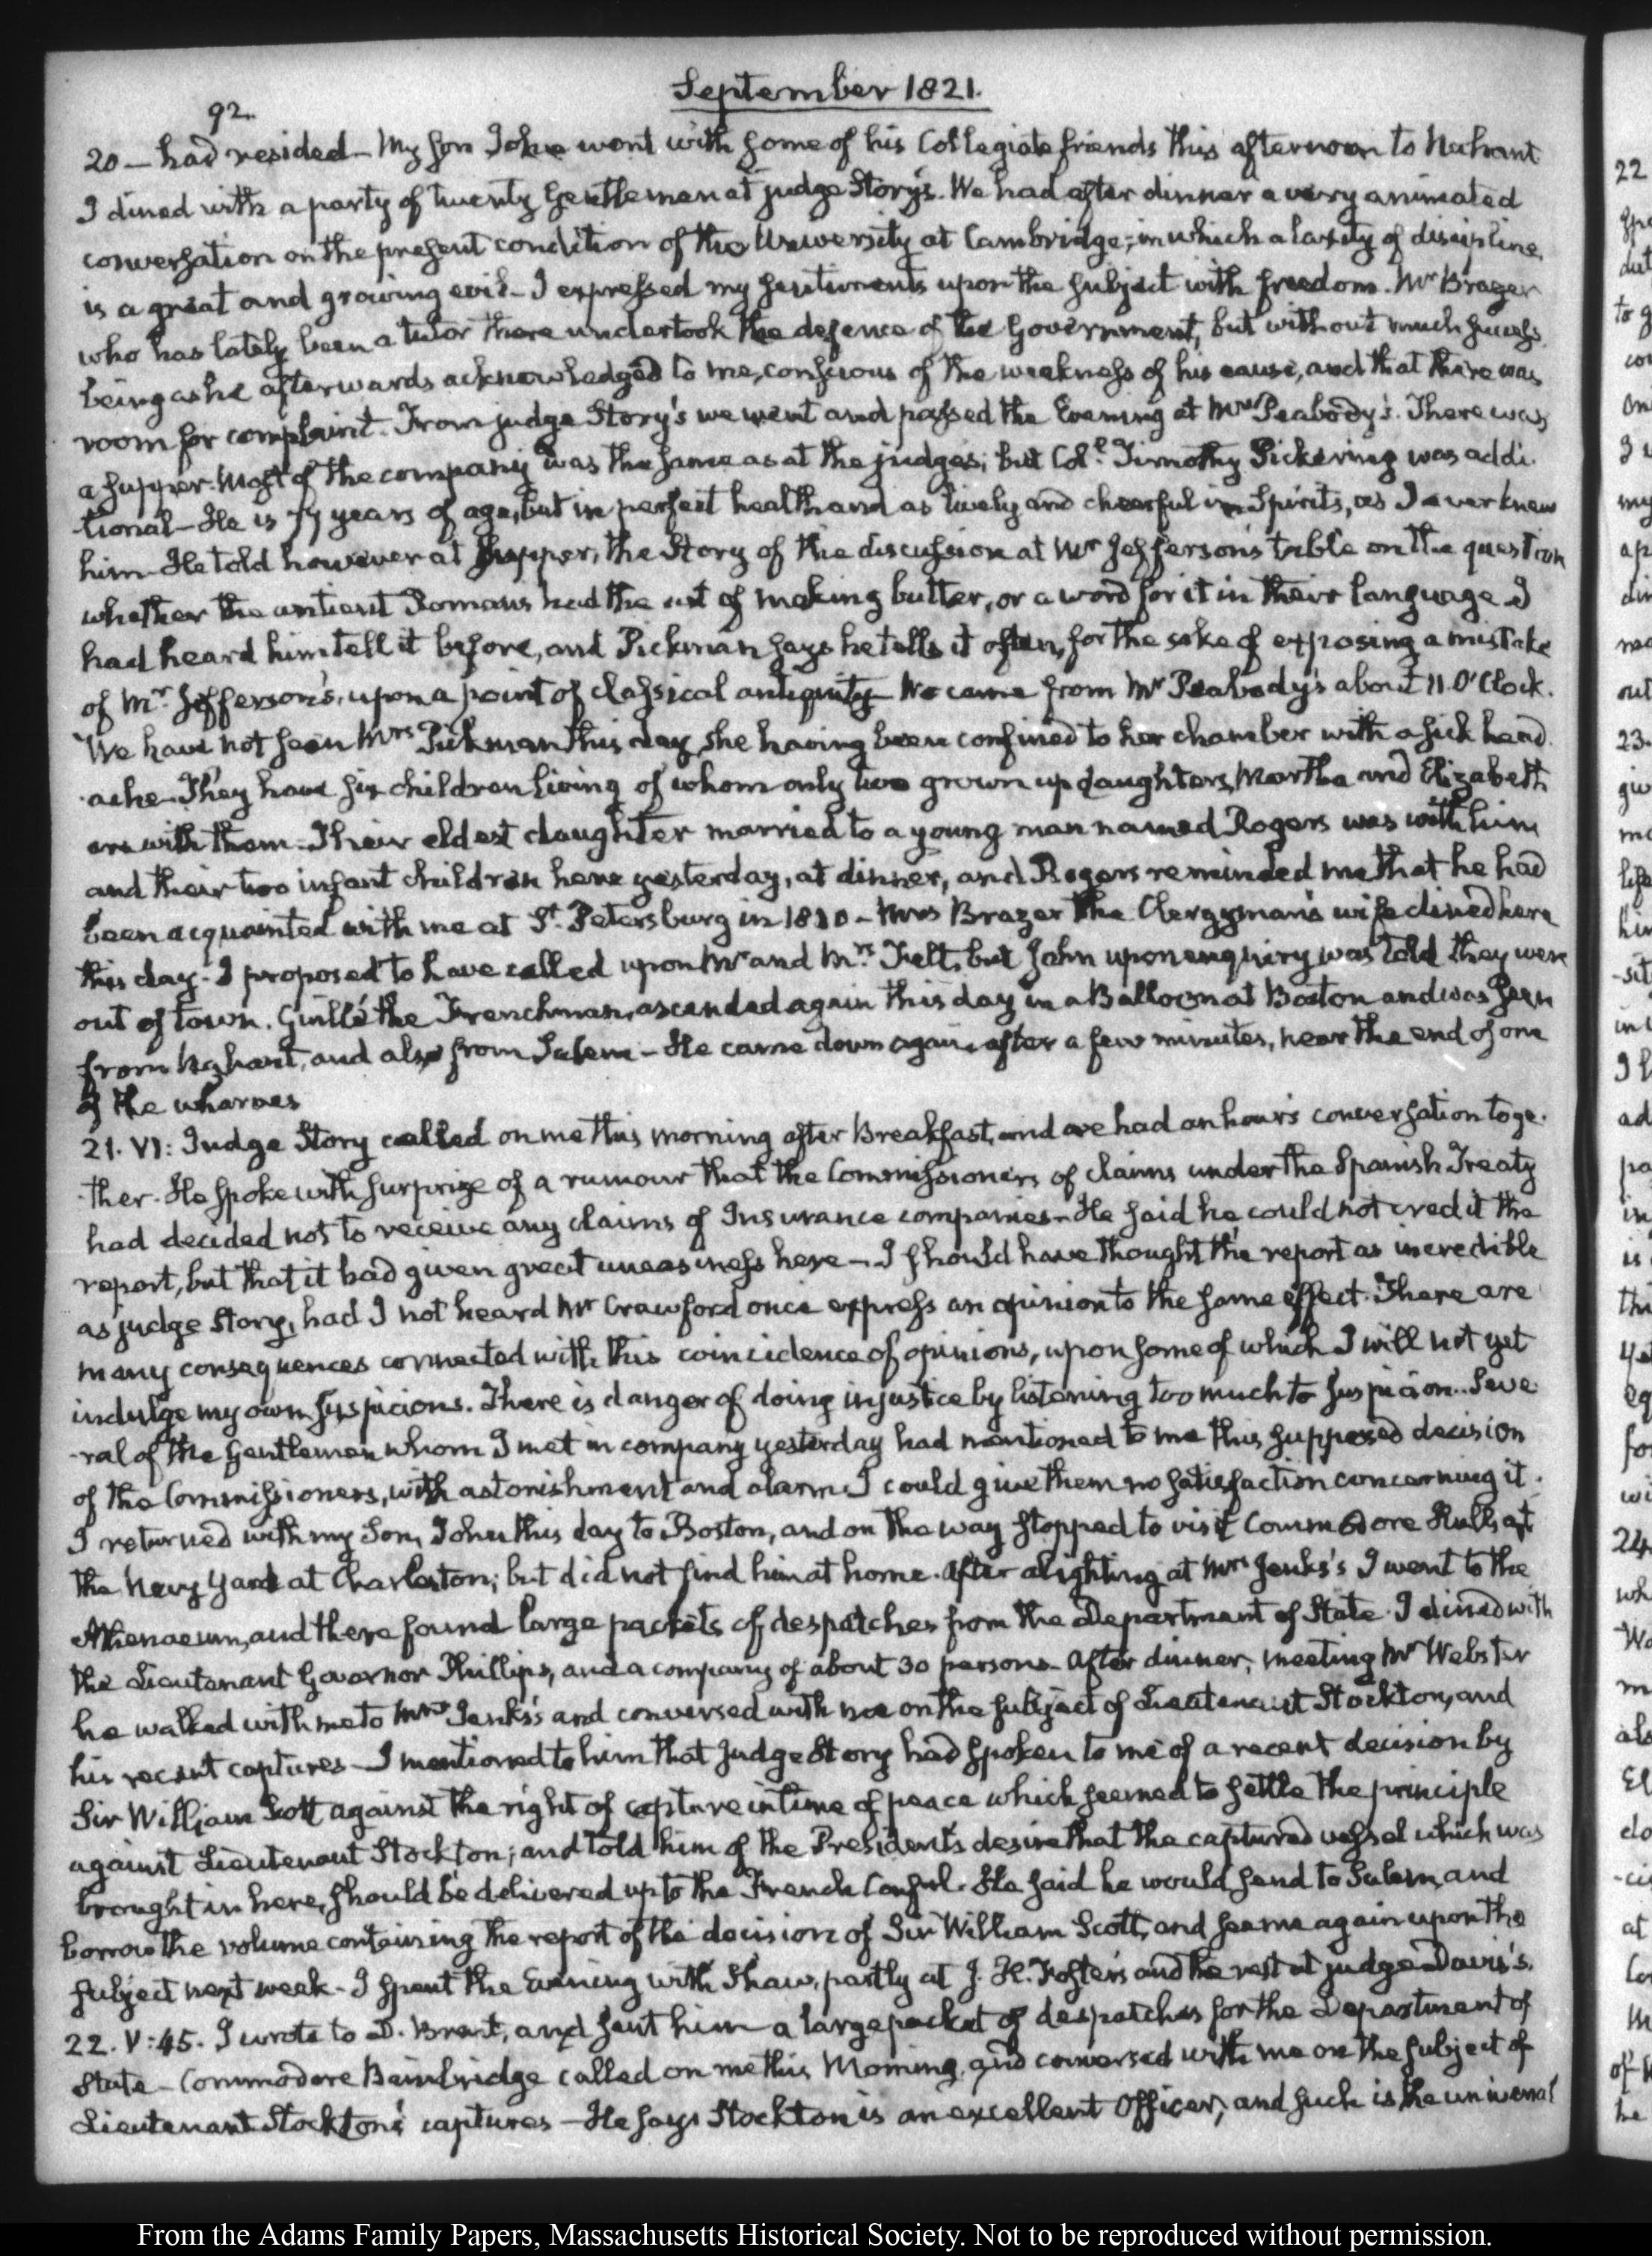 September 1821.
92.
20 — had resided — My Son John went with some of his Collegiate friends this afternoon to Nahant
I dined with a party of twenty Gentlemen at judge Story's. We had after dinner a very animated
conversation on the present condition of the University at Cambridge; in which a laxity of discipline
is a great and growing evil — I expressed my sentiments upon the subject with freedom. Mr Brazer
who has lately been a tutor there undertook the defence of the Government, but without much success
being as he afterwards acknowledged to me, conscious of the weakness of his cause, and that there was
room for complaint. From judge Story's we went and passed the Evening at Mr Peabody's. There was
a supper. Most of the company was the same as at the judges; but Coll. Timothy Pickering was addi-
-tional — He is 77 years of age, but in perfect health and as lively and cheerful in Spirits, as I ever knew
him — He told however at supper, the Story of the discussion at Mr Jefferson's table on the question
whether the antient Romans had the art of making butter, or a word for it in their language I
had heard him tell it before, and Pickman says he tells it often, for the sake of exposing a mistake
of Mr. Jefferson's, upon a point of classical antiquity We came from Mr Peabody's about 11. O'Clock.
We have not seen Mrs Pickman this day, she having been confined to her chamber with a sick head
-ache — They have six children living of whom only two grown up daughters, Martha and Elizabeth
are with them — Their eldest daughter married to a young man named Rogers was with him
and their two infant children here yesterday, at dinner, and Rogers reminded me that he had
been acquainted with me at St. Petersburg in 1810 — Mrs Brazer the Clergyman's wife dined here
this day — I proposed to have called upon Mr and Mrs. Felt, but John upon enquiry was told they were
out of town. Guillé the Frenchman, ascended again this day in a Balloon at Boston and was seen
from Nahant, and also from Salem — He came down again after a few minutes, near the end of one
of the wharves
21. VI: Judge Story called on me this morning after Breakfast, and we had an hour's conversation toge-
-ther. He spoke with surprize of a rumour that the Commissioners of claims under the Spanish Treaty
had decided not to receive any claims of Insurance companies — He said he could not credit the
report, but that it had given great uneasiness here — I should have thought the report as incredible
as judge Story, had I not heard Mr Crawford once express an opinion to the same effect. There are
many consequences connected with this coincidence of opinions, upon some of which I will not yet
indulge my own suspicions. There is danger of doing injustice by listening too much to suspicion. Seve-
-ral of the Gentlemen whom I met in company yesterday had mentioned to me this supposed decision
of the Commissioners, with astonishment and alarm. I could give them no satisfaction concerning it.
I returned with my Son, John this day to Boston, and on the way stopped to visit Commodore Hull, at
the Navy Yard at Charleston; but did not find him at home. After alighting at Mrs Jenks's I went to the
Athenaeum, and there found large packets of despatches from the Department of State. I dined with
the Lieutenant Governor Phillips, and a company of about 30 persons — After dinner, meeting Mr Webster
he walked with me to Mrs Jenks's and conversed with me on the subject of Lieutenant Stockton, and
his recent captures — I mentioned to him that Judge Story had spoken to me of a recent decision by
Sir William Scott against the right of capture in time of peace which seemed to settle the principle
against Lieutenant Stockton; and told him of the President's desire that the captured vessel which was
brought in here, should be delivered up to the French Consul. He said he would send to Salem, and
borrow the volume containing the report of the decision of Sir William Scott, and see me again upon the
subject next week — I spent the Evening with Shaw, partly at J. H. Foster's and the rest at judge Davis's.
22. V:45. I wrote to D. Brent, and sent him a large packet of despatches for the Department of
State — Commodore Bainbridge called on me this Morning, and conversed with me on the subject of
Lieutenant Stockton's captures — He says Stockton is an excellent Officer, and such is the universal
From the Adams Family Papers, Massachusetts Historical Society. Not to be reproduced without permission.